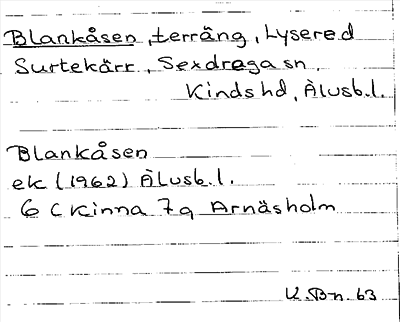 Blankåsen, terräng, Lysered
Surtekärr, Sexdrega sn,
Kinds hd, Älvsb.l.
Blankåsen
ek (1962) Älvsb.l.
6 C Kinna 7g Arnäsholm
U.Bn. 63